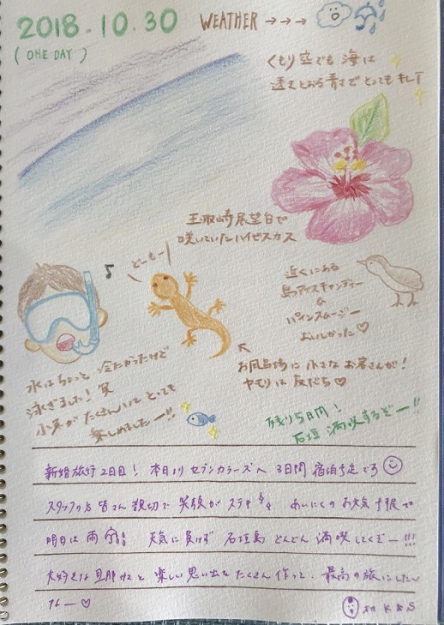 2018.10.30 WEATHER →→→
( ONE DAY )
くもり空でも海は
透きとおる青でとってもキレイ
玉取崎展望台で
咲いていたハイビスカス
どーもー!
近くにある
鳥
アイスキャンディー
&
パインスムージー
おいしかった♡
お風呂場に小さなお客さんが!
ヤモリは友だち♡
水はちょっと冷たかったけど
泳ぎました!笑
小魚がたくさんいてとっても
楽しめましたー!!
残り5日間!
石垣満喫するぞー!!
新婚旅行2日目! 本日よりセブンカラーズへ3日間宿泊予定です
スタッフの皆さん親切で笑顔がステキ あいにくのお天気予報で
明日は雨 天気に負けず石垣島どんどん満喫してくぞー!!!
大好きな旦那サマと楽しい思い出をたくさん作って、最高の旅にしたい
なー♡
K&S